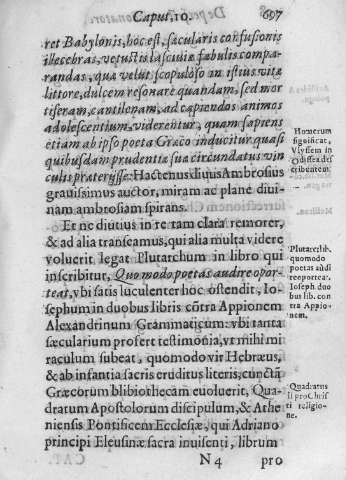 Caput, 10. 697
ret Babylonis, hoc est, sæcularis confusionis
illecebras, vetustis lasciuiæ fabulis compa-
randas, quæ velut scopuloso in istius vitæ
littore, dulcem resonare quandam, sed mor
tiferam, cantilenam, ad capiendos animos
adolescentium, viderentur, quam sapiens
etiam ab ipso poeta Græco inducitur quasi
quibusdam prudentiæ sua circundatus vin
culis præterijsse: Hactenus diuus Ambrosius
grauissimus auctor, miram ac plane diui-
nam ambrosiam spirans.
Et ne diutius in re tam clara remorer,
& ad alia transeamus, qui alia multa videre
voluerit legat Plutarchum in libro qui
inscribitur, Quomodo poetas audire opor-
teat, vbi satis luculenter hoc ostendit, Io-
sephum in duobus libris cōtra Appionem
Alexandrinum Grammaticum: vbi tanta
sæcularium profert testimonia, vt mihi mi
raculum subeat, quomodo vir Hebræus,
& ab infantia sacris eruditus literis, cunctā
Græcorum blibiothecam euoluerit, Qua-
dratum Apostolorum discipulum, & Athe
niensis Pontificem Ecclesiæ, qui Adriano
principi Eleusinæ sacra inuisenti, librum
N 4 pro
Homerum
significat,
Vlyssem in
Odissea des
cribentem.
Plutarc. lib.
quomodo
poetas audi
re oporteat.
Ioseph. duo
bus lib. con
tra Appio-
nem.
Quadratus
li. pro Chris
ti religio-
ne.